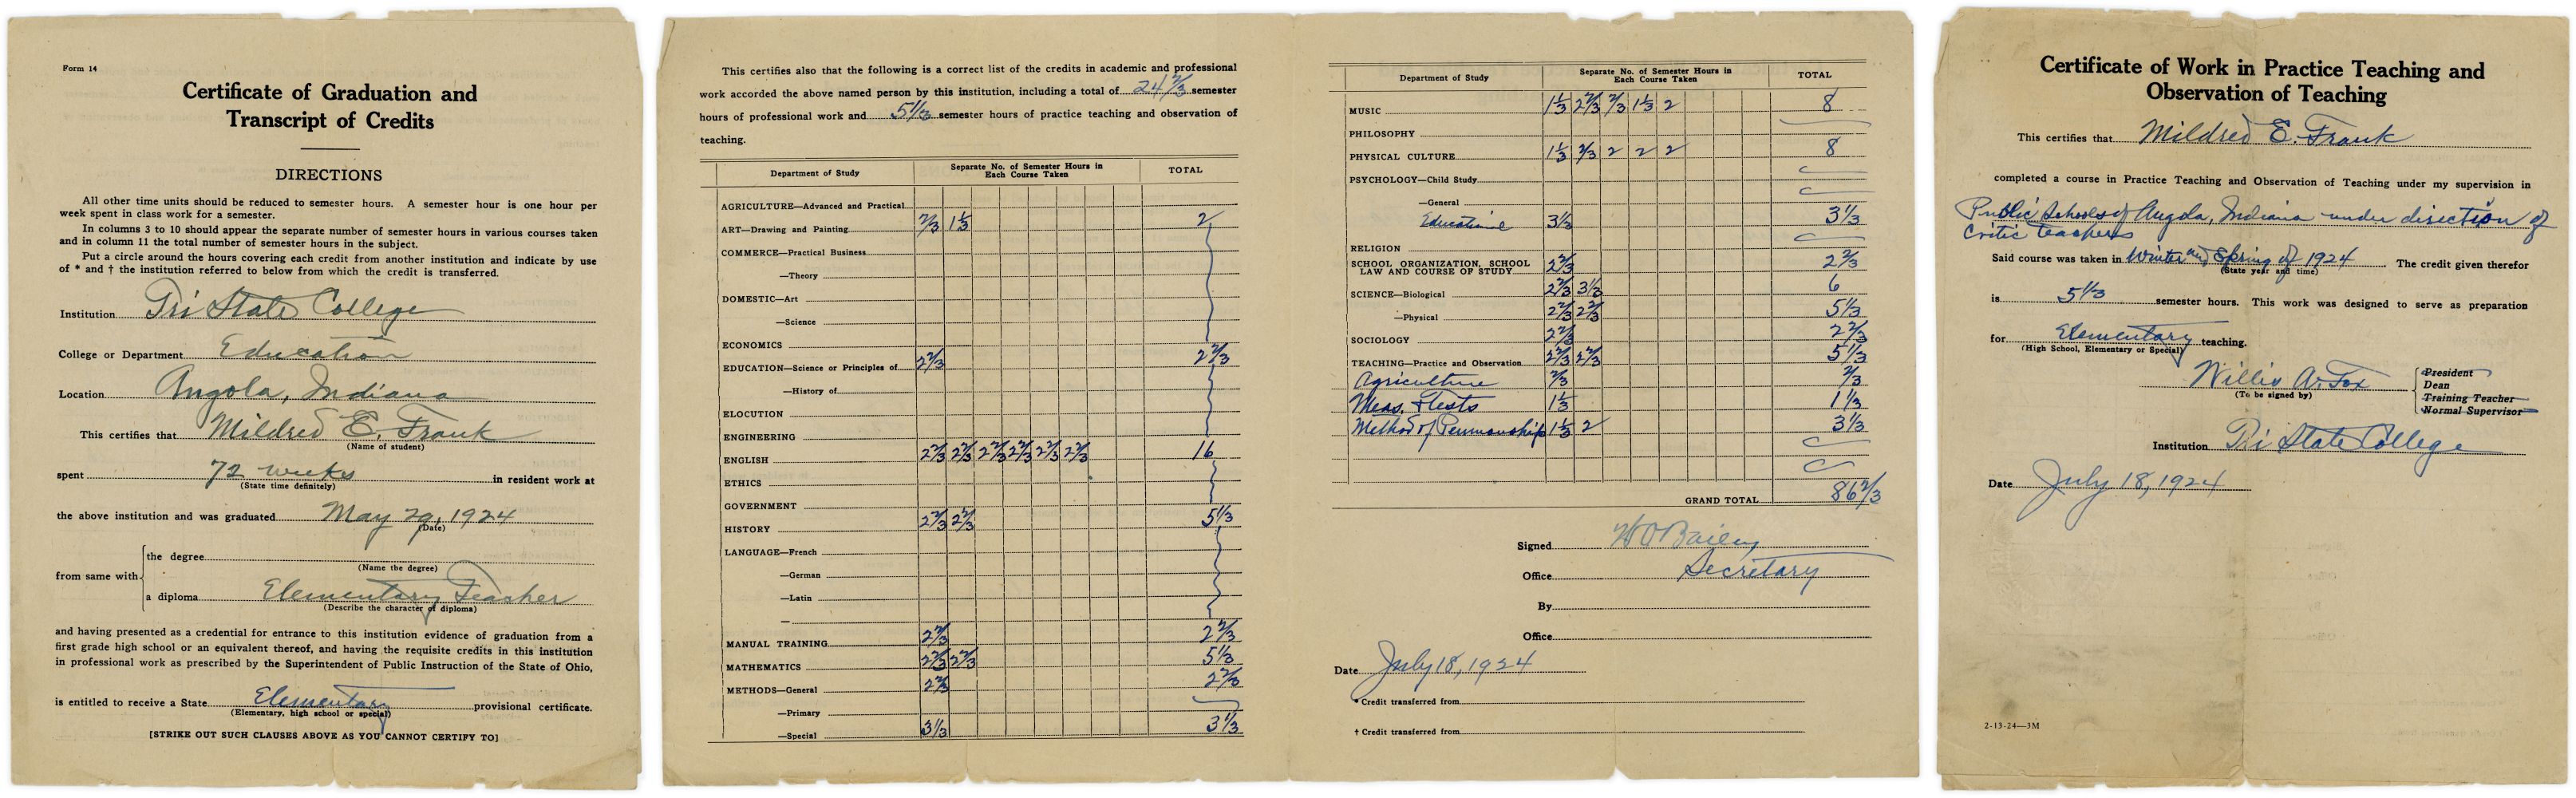 Form 14
Certificate of Graduation and
Transcript of Credits
DIRECTIONS
All other time units should be reduced to semester hours. A semester hour is one hour per
week spent in class work for a semester.
In columns 3 to 10 should appear the separate number of semester hours in various courses taken
and in column 11 the total number of semester hours in the subject.
Put a circle around the hours covering each credit from another institution and indicate by use
of * and † the institution referred to below from which the credit is transferred.
Institution Tri State College
College or Department Education
Location Angola, Indiana
This certifies that Mildred E. Frank
(Name of student)
spent 72 weeks in resident work at
(State time definitely)
the above institution and was graduated May 29, 1924
(Date)
from same with
the degree
(Name the degree)
a diploma Elementary Teacher
(Describe the character of diploma)
and having presented as a credential for entrance to this institution evidence of graduation from a
first grade high school or an equivalent thereof, and having the requisite credits in this institution
in professional work as prescribed by the Superintendent of Public Instruction of the State of Ohio,
is entitled to receive a State Elementary provisional certificate.
(Elementary, high school or special)
[STRIKE OUT SUCH CLAUSES ABOVE AS YOU CANNOT CERTIFY TO]
This certifies also that the following is a correct list of the credits in academic and professional
work accorded the above named person by this institution, including a total of 24 2/3 semester
hours of professional work and 5 1/3 semester hours of practice teaching and observation of
teaching.
Department of Study Separate No. of Semester Hours in Each Course Taken TOTAL
AGRICULTURE—Advanced and Practical
ART—Drawing and Painting 2/3 1 1/3 2
COMMERCE—Practical Business
—Theory
DOMESTIC—Art
—Science
ECONOMICS
EDUCATION—Science or Principles of 2 2/3 2 2/3
—History of
ELOCUTION
ENGINEERING
ENGLISH 2 2/3 2 2/3 2 2/3 2 2/3 2 2/3 2 2/3 16
ETHICS
GOVERNMENT
HISTORY 2 2/3 2 2/3 5 1/3
LANGUAGE—French
—German
—Latin
—
MANUAL TRAINING 2 2/3 2 2/3
MATHEMATICS 2 2/3 2 2/3 5 1/3
METHODS—General 2 2/3 2 2/3
—Primary
—Special 3 1/3 3 1/3
Department of Study Separate No. of Semester Hours in Each Course Taken TOTAL
MUSIC 1 1/3 2 2/3 2/3 1 1/3 2 8
PHILOSOPHY
PHYSICAL CULTURE 1 1/3 2/3 2 2 2 8
PSYCHOLOGY—Child Study
—General
Educational 3 1/3 3 1/3
RELIGION
SCHOOL ORGANIZATION, SCHOOL
LAW AND COURSE OF STUDY 2 2/3 2 2/3
SCIENCE—Biological 2 2/3 3 1/3 6
—Physical 2 2/3 2 2/3 5 1/3
SOCIOLOGY 2 2/3 2 2/3
TEACHING—Practice and Observation 2 2/3 2 2/3 5 1/3
Agriculture 2/3 2/3
Meas. & Tests 1 1/3 1 1/3
Method of Penmanship 1 1/3 2 3 1/3
GRAND TOTAL 86 2/3
Signed W O Bailey
Office Secretary
By
Office
Date July 18, 1924
* Credit transferred from
† Credit transferred from
Certificate of Work in Practice Teaching and
Observation of Teaching
This certifies that Mildred E. Frank
completed a course in Practice Teaching and Observation of Teaching under my supervision in
Public Schools of Angola, Indiana under direction of
Critic teachers
Said course was taken in Winter and Spring of 1924 The credit given therefor
(State year and time)
is 5 1/3 semester hours. This work was designed to serve as preparation
for Elementary teaching.
(High School, Elementary or Special)
Willis A. Fox
(To be signed by)
President
Dean
Training Teacher
Normal Supervisor
Institution Tri State College
Date July 18, 1924
2-13-24—3M